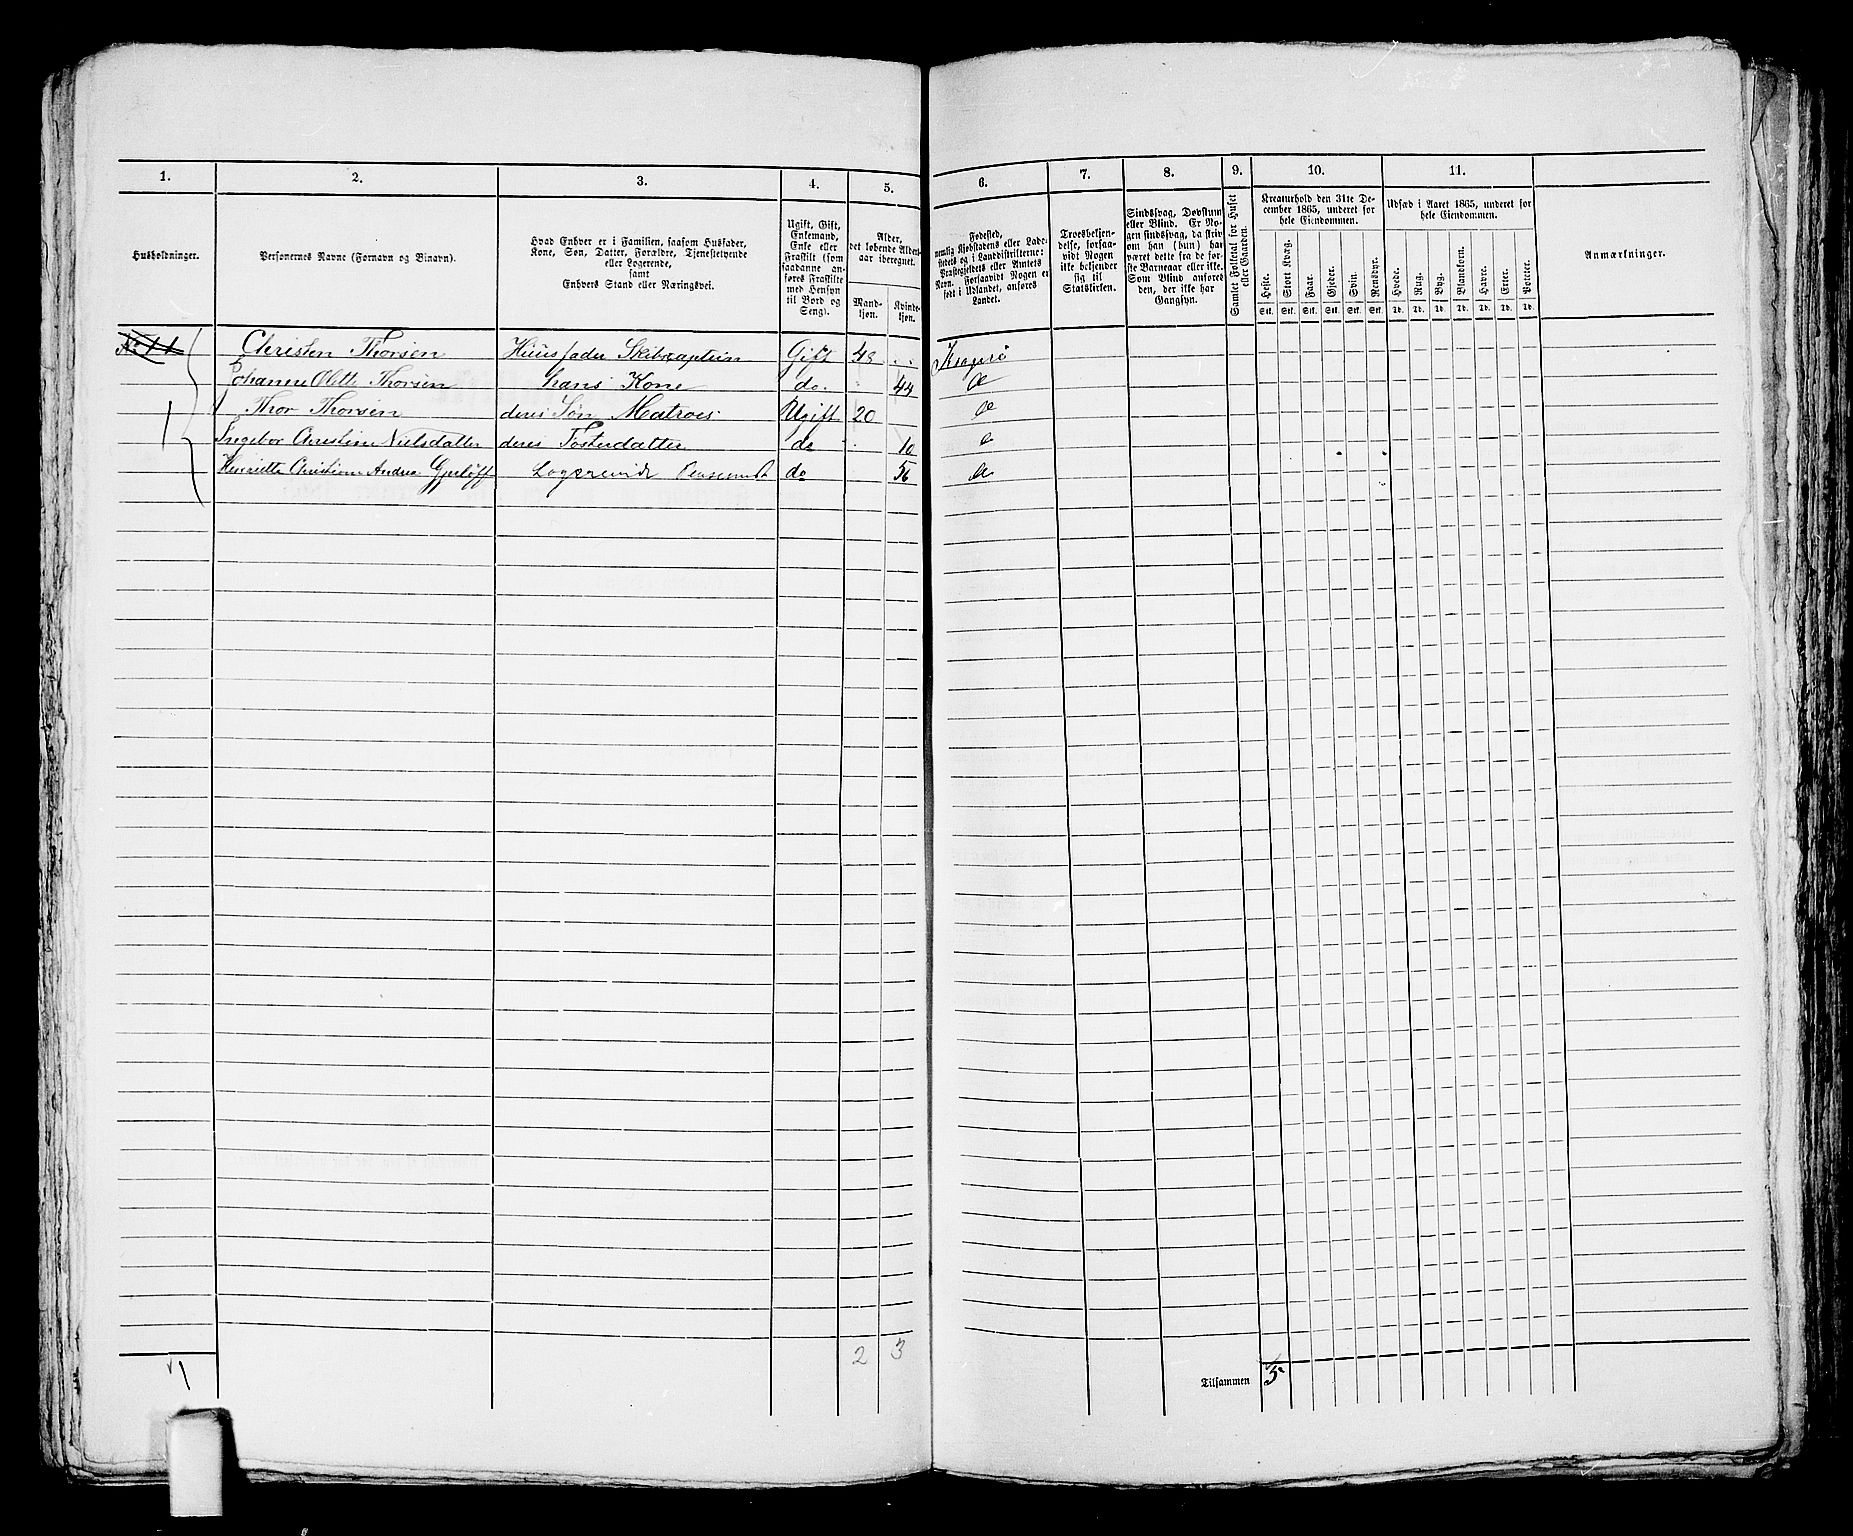 1. 2. 3. 4. 5. 6. 7. 8. 9. 10. 11.
Husholdninger.
Personernes Navne (Fornavn og Binavn).
Hvad Enhver er i Familien, saasom Husfader,
Kone, Søn, Datter, Forældre, Tjenestetyende
eller Logerende,
samt
Enhvers Stand eller Næringsvei.
Ugift, Gift,
Enkemand,
Enke eller
Fraskilt (som
saadanne an-
føres Fraskilte
med Hensyn
til Bord og
Seng).
Alder,
det løbende Alders-
aar iberegnet.
Mand-
kjøn.
Kvinde-
kjøn.
Fødested,
nemlig Kjøbstadens eller Lade-
stedets og i Landdistrikterne:
Præstegjeldets eller Amtets
Navn. Forsaavidt Nogen er
født i Udlandet, anføres
Landet.
Troesbekjen-
delse, forsaa-
vidt Nogen
ikke bekjender
sig til
Statskirken.
Sindssvag, Døvstum
eller Blind. Er No-
gen sindssvag, da skriv
om han (hun) har
været dette fra de før-
ste Barneaar eller ikke.
Som Blind anføres
den, der ikke har
Gangsyn.
Samlet Folketal for Huset
eller Gaarden.
Kreaturhold den 31te De-
cember 1865, underet for
hele Eiendommen.
Heste. Stort Kvæg. Faar. Gjeder. Svin. Rensdyr.
Stk. Stk. Stk. Stk. Stk. Stk.
Udsæd i Aaret 1865, underet for
hele Eiendommen.
Hvede. Rug. Byg. Blandkorn. Havre. Erter. Poteter.
Td. Td. Td. Td. Td. Td. Td.
Anmærkninger.
No 11 Christen Thorsen Huusfader Skibscaptein Gift 48 Kragerø
Johanne Olette Thorsen hans Kone do. 44 do
Thor Thorsen deres Søn Matros Ugift 20 do
1 Ingebor Christine Nielsdatter deres Fosterdatter do 10 do
Henriette Christiane Andrea Gjerløff Logerende do 56 do
1 2 3 Tilsammen 5